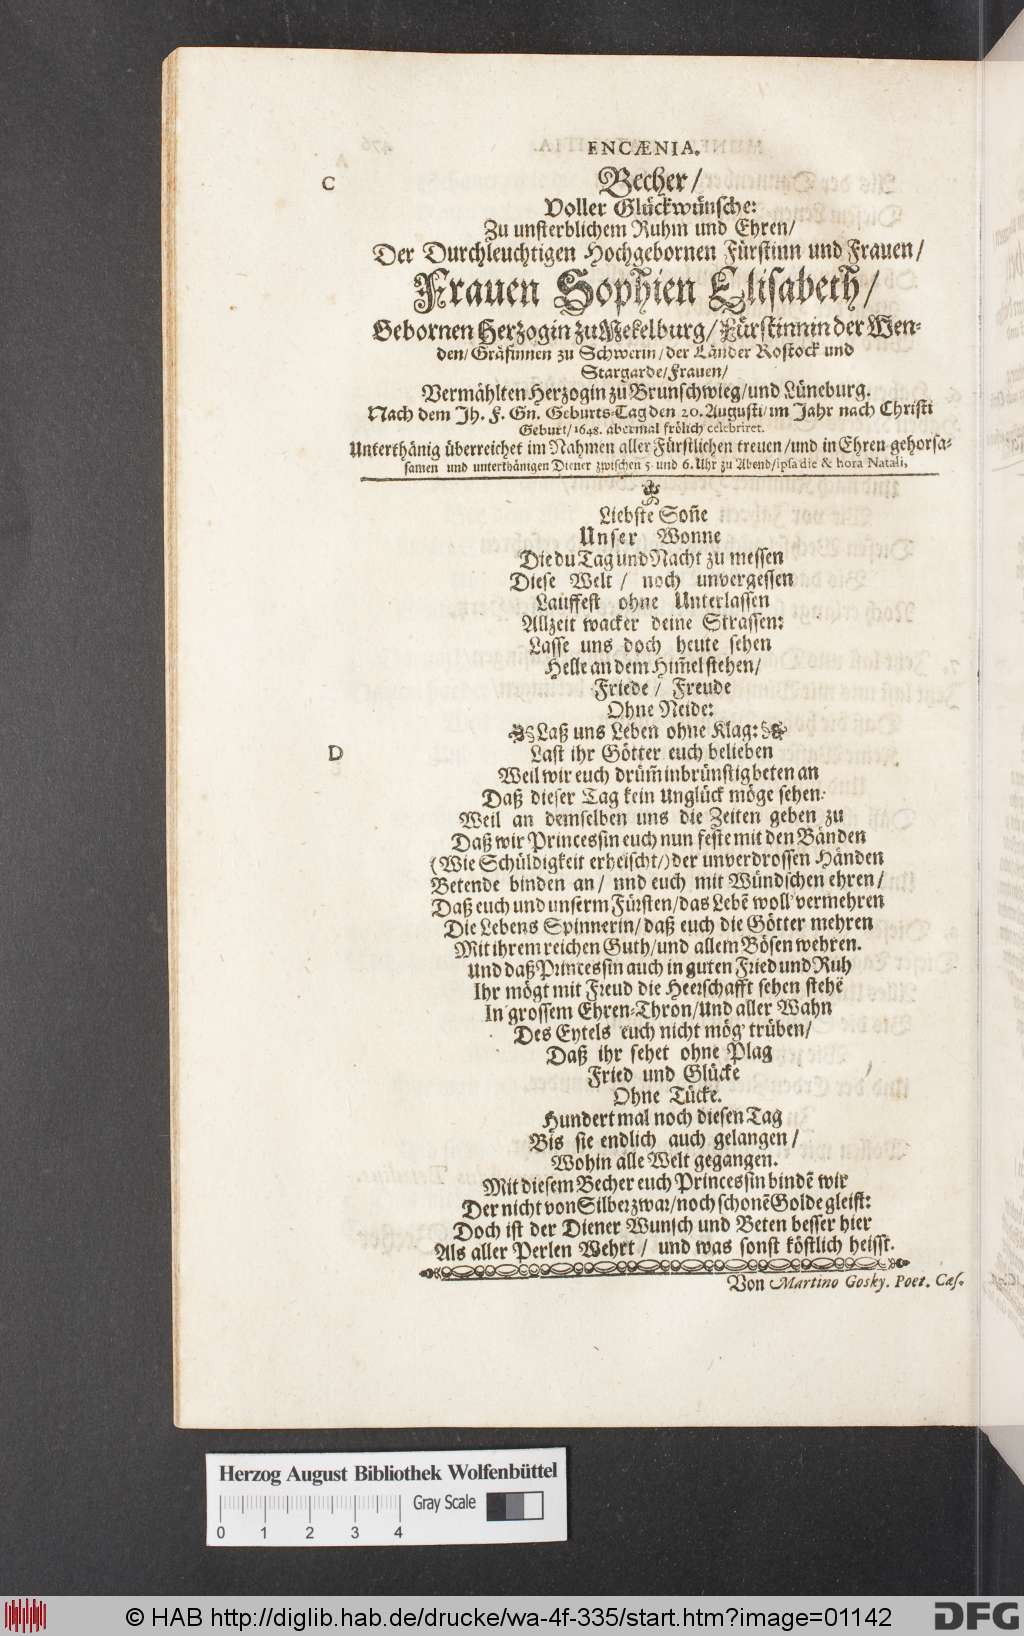 ENCÆNIA.
C
Becher/
Voller Glückwünsche:
Zu unsterblichem Ruhm und Ehren/
Der Durchleuchtigen Hochgebornen Fürstinn und Frauen/
Frauen Sophien Elisabeth/
Gebornen Herzogin zu Mekelburg/Fürstinnin der Wen-
den/Gräfinnen zu Schwerin/der Länder Rostock und
Stargarde/Frauen/
Vermählten Herzogin zu Brunschwieg/und Lüneburg.
Nach dem Jh. F. Gn. Geburts-Tag den 20. Augusti/im Jahr nach Christi
Geburt/1648. abermal frölich celebriret.
Unterthänig überreichet im Nahmen aller Fürstlichen treuen/und in Ehren gehorsa-
samen und unterthänigen Diener zwischen 5. und 6. Uhr zu Abend/ipsa die & hora Natali,
Liebste Soñe
Unser Wonne
Die du Tag und Nacht zu messen
Diese Welt / noch unvergessen
Lauffest ohne Unterlassen
Allzeit wacker deine Strassen:
Lasse uns doch heute sehen
Helle an dem Him̃el stehen/
Friede / Freude
Ohne Neide:
Laß uns Leben ohne Klag:
D
Last ihr Götter euch belieben
Weil wir euch drüm̃ inbrünstig beten an
Daß dieser Tag kein Unglück möge sehen:
Weil an demselben uns die Zeiten geben zu
Daß wir Princessin euch nun feste mit den Bänden
(Wie Schüldigkeit erheischt/) der unverdrossen Händen
Betende binden an / nnd euch mit Wündschen ehren/
Daß euch und unserm Fürsten/das Lebẽ woll' vermehren
Die Lebens Spinnerin/daß euch die Götter mehren
Mit ihrem reichen Guth/und allem Bösen wehren.
Und daß Princessin auch in guten Fried und Ruh
Ihr mögt mit Freud die Heerschafft sehen stehẽ
In grossem Ehren-Thron/Und aller Wahn
Des Eytels euch nicht mög' trüben/
Daß ihr sehet ohne Plag
Fried und Glücke
Ohne Tücke.
Hundert mal noch diesen Tag
Bis sie endlich auch gelangen /
Wohin alle Welt gegangen.
Mit diesem Becher euch Princessin bindẽ wir
Der nicht von Silber zwar/noch schonẽ Golde gleist:
Doch ist der Diener Wunsch und Beten besser hier
Als aller Perlen Wehrt / und was sonst köstlich heisst.
Von Martino Gosky. Poet. Cæs.
Herzog August Bibliothek Wolfenbüttel
Gray Scale
0 1 2 3 4
© HAB http://diglib.hab.de/drucke/wa-4f-335/start.htm?image=01142
DFG